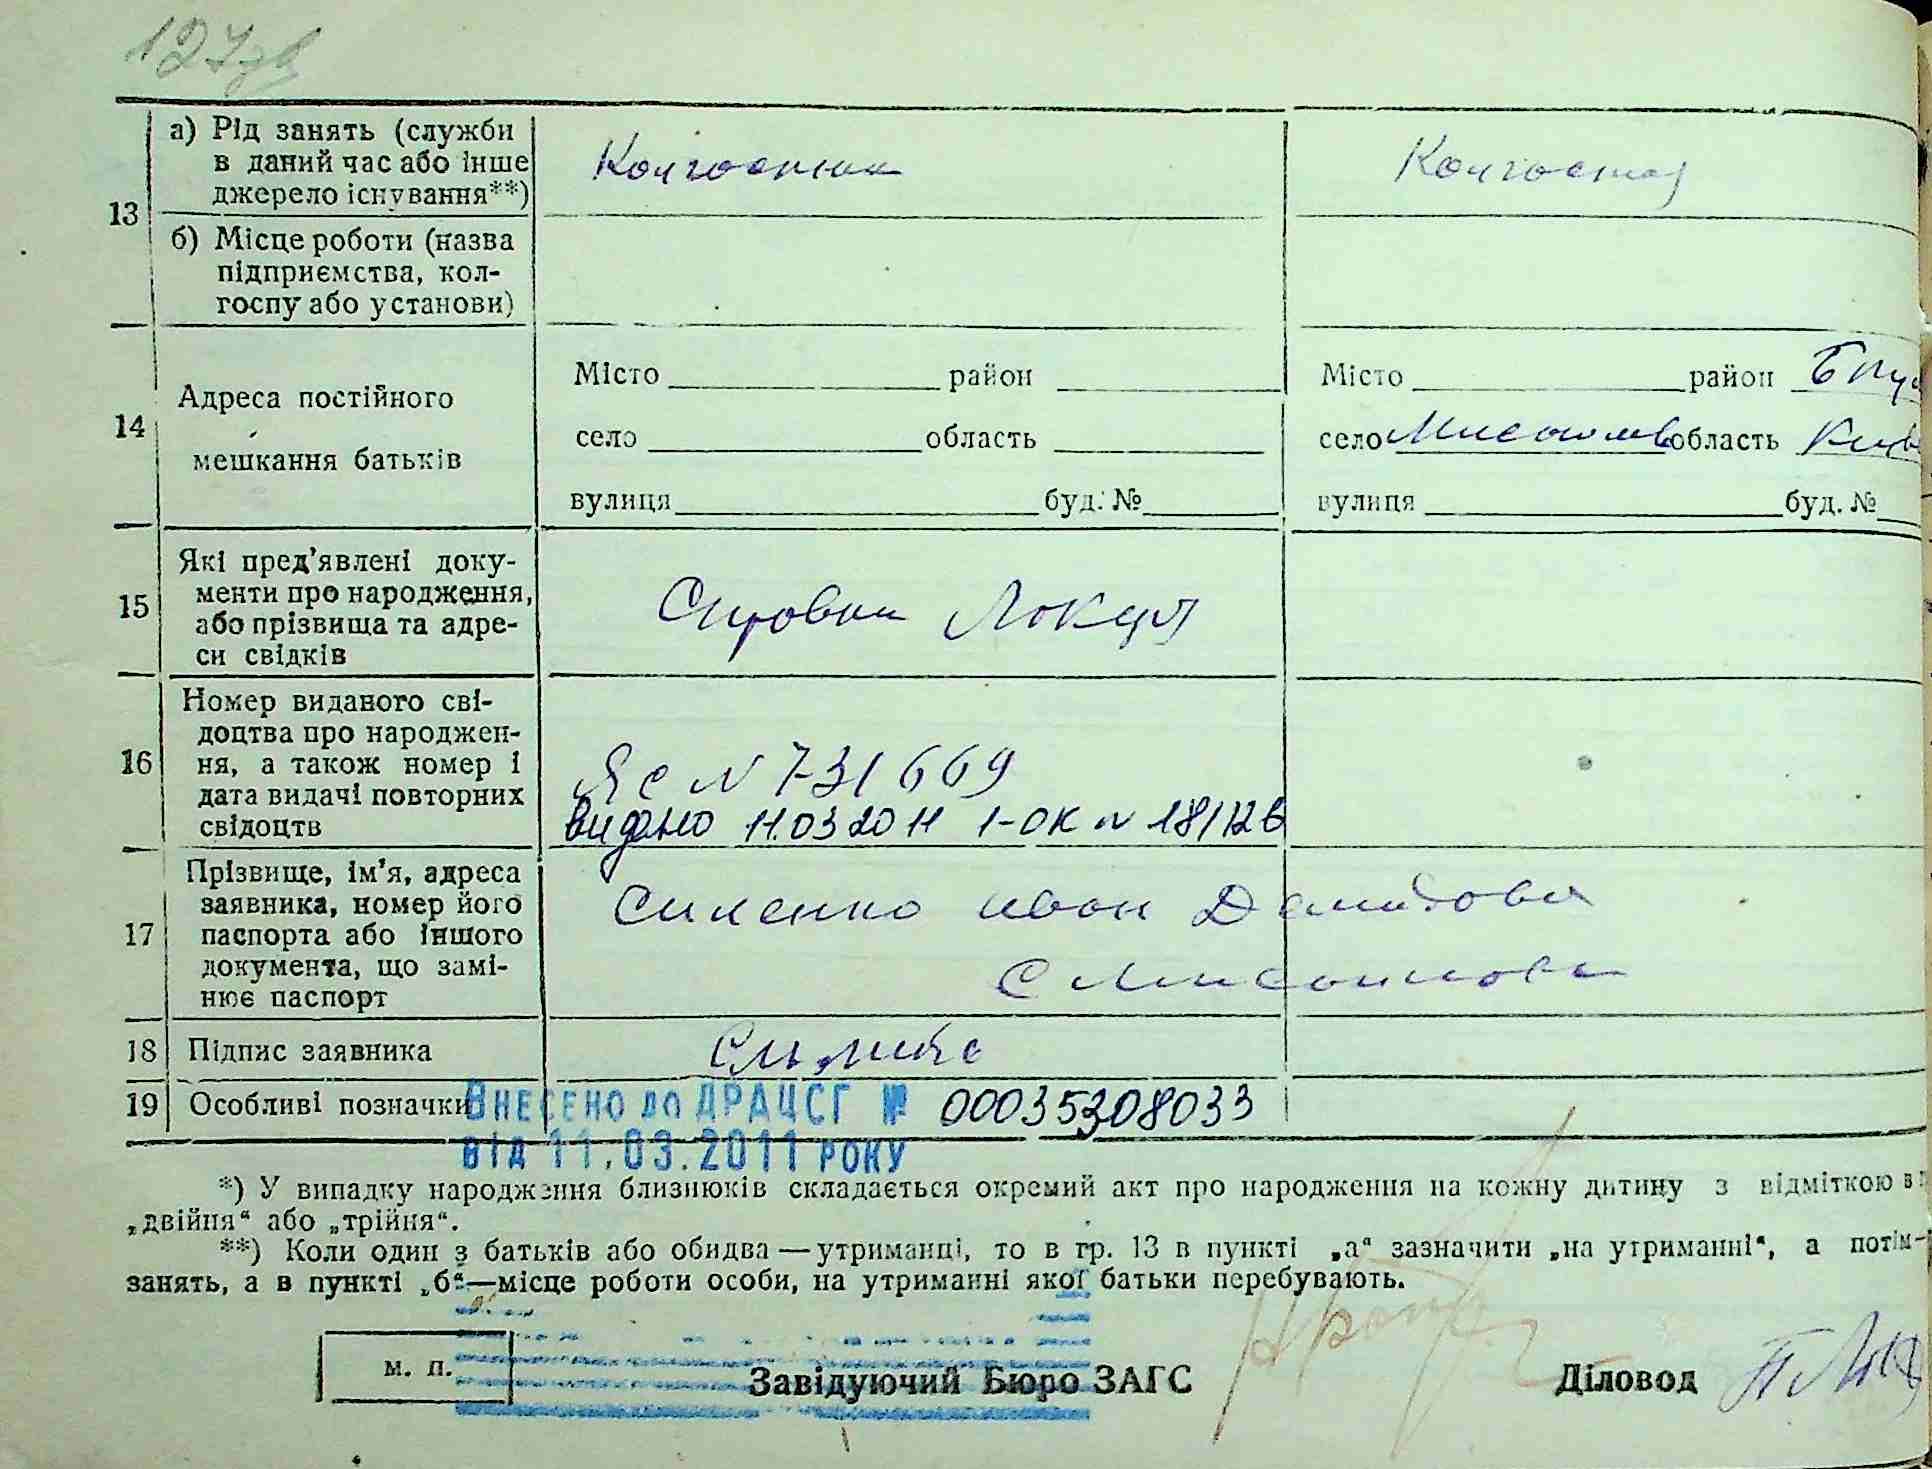 127зв
13 а) Рід занять (служби
в даний час або інше
джерело існування**)
Колгоспник
Колгоспн
б) Місце роботи (назва
підприємства, кол-
госпу або установи)
14 Адреса постійного
мешкання батьків
Місто район
село область
вулиця буд. №
Місто район
село область Київ
вулиця буд. №
15 Які пред'явлені доку-
менти про народження,
або прізвища та адре-
си свідків
Справка
16 Номер виданого сві-
доцтва про народжен-
ня, а також номер і
дата видачі повторних
свідоцтв
ЯС N 731669
Видано 11.03 2011 1-ОК N 181126
17 Прізвище, ім'я, адреса
заявника, номер його
паспорта або іншого
документа, що замі-
нює паспорт
Силенко Иван Демидович
с
18 Підпис заявника
19 Особливі позначки
Внесено до ДРАЦСГ № 00035308033
від 11.03.2011 року
*) У випадку народження близнюків складається окремий акт про народження на кожну дитину з відміткою в
„двійня“ або „трійня“.
**) Коли один з батьків або обидва — утриманці, то в гр. 13 в пункті „а“ зазначити „на утриманні“, а потім—
занять, а в пункті „б“—місце роботи особи, на утриманні якої батьки перебувають.
м. п.
Завідуючий Бюро ЗАГС
Діловод